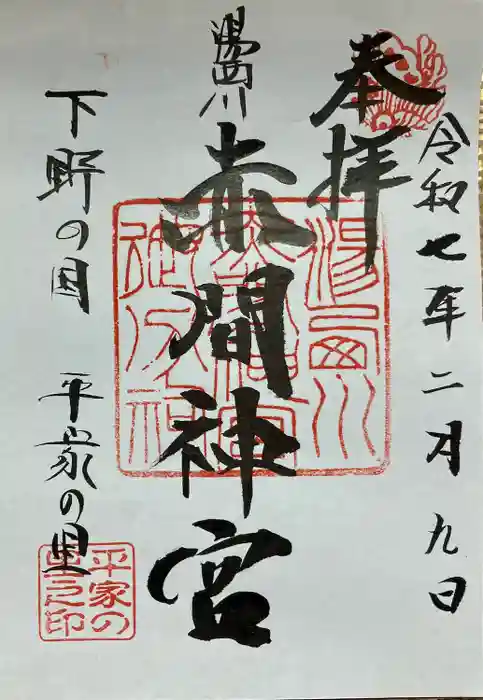 奉拝
令和七年二月九日
湯西川
赤間神宮
下野の国 平家の里
平家の里之印